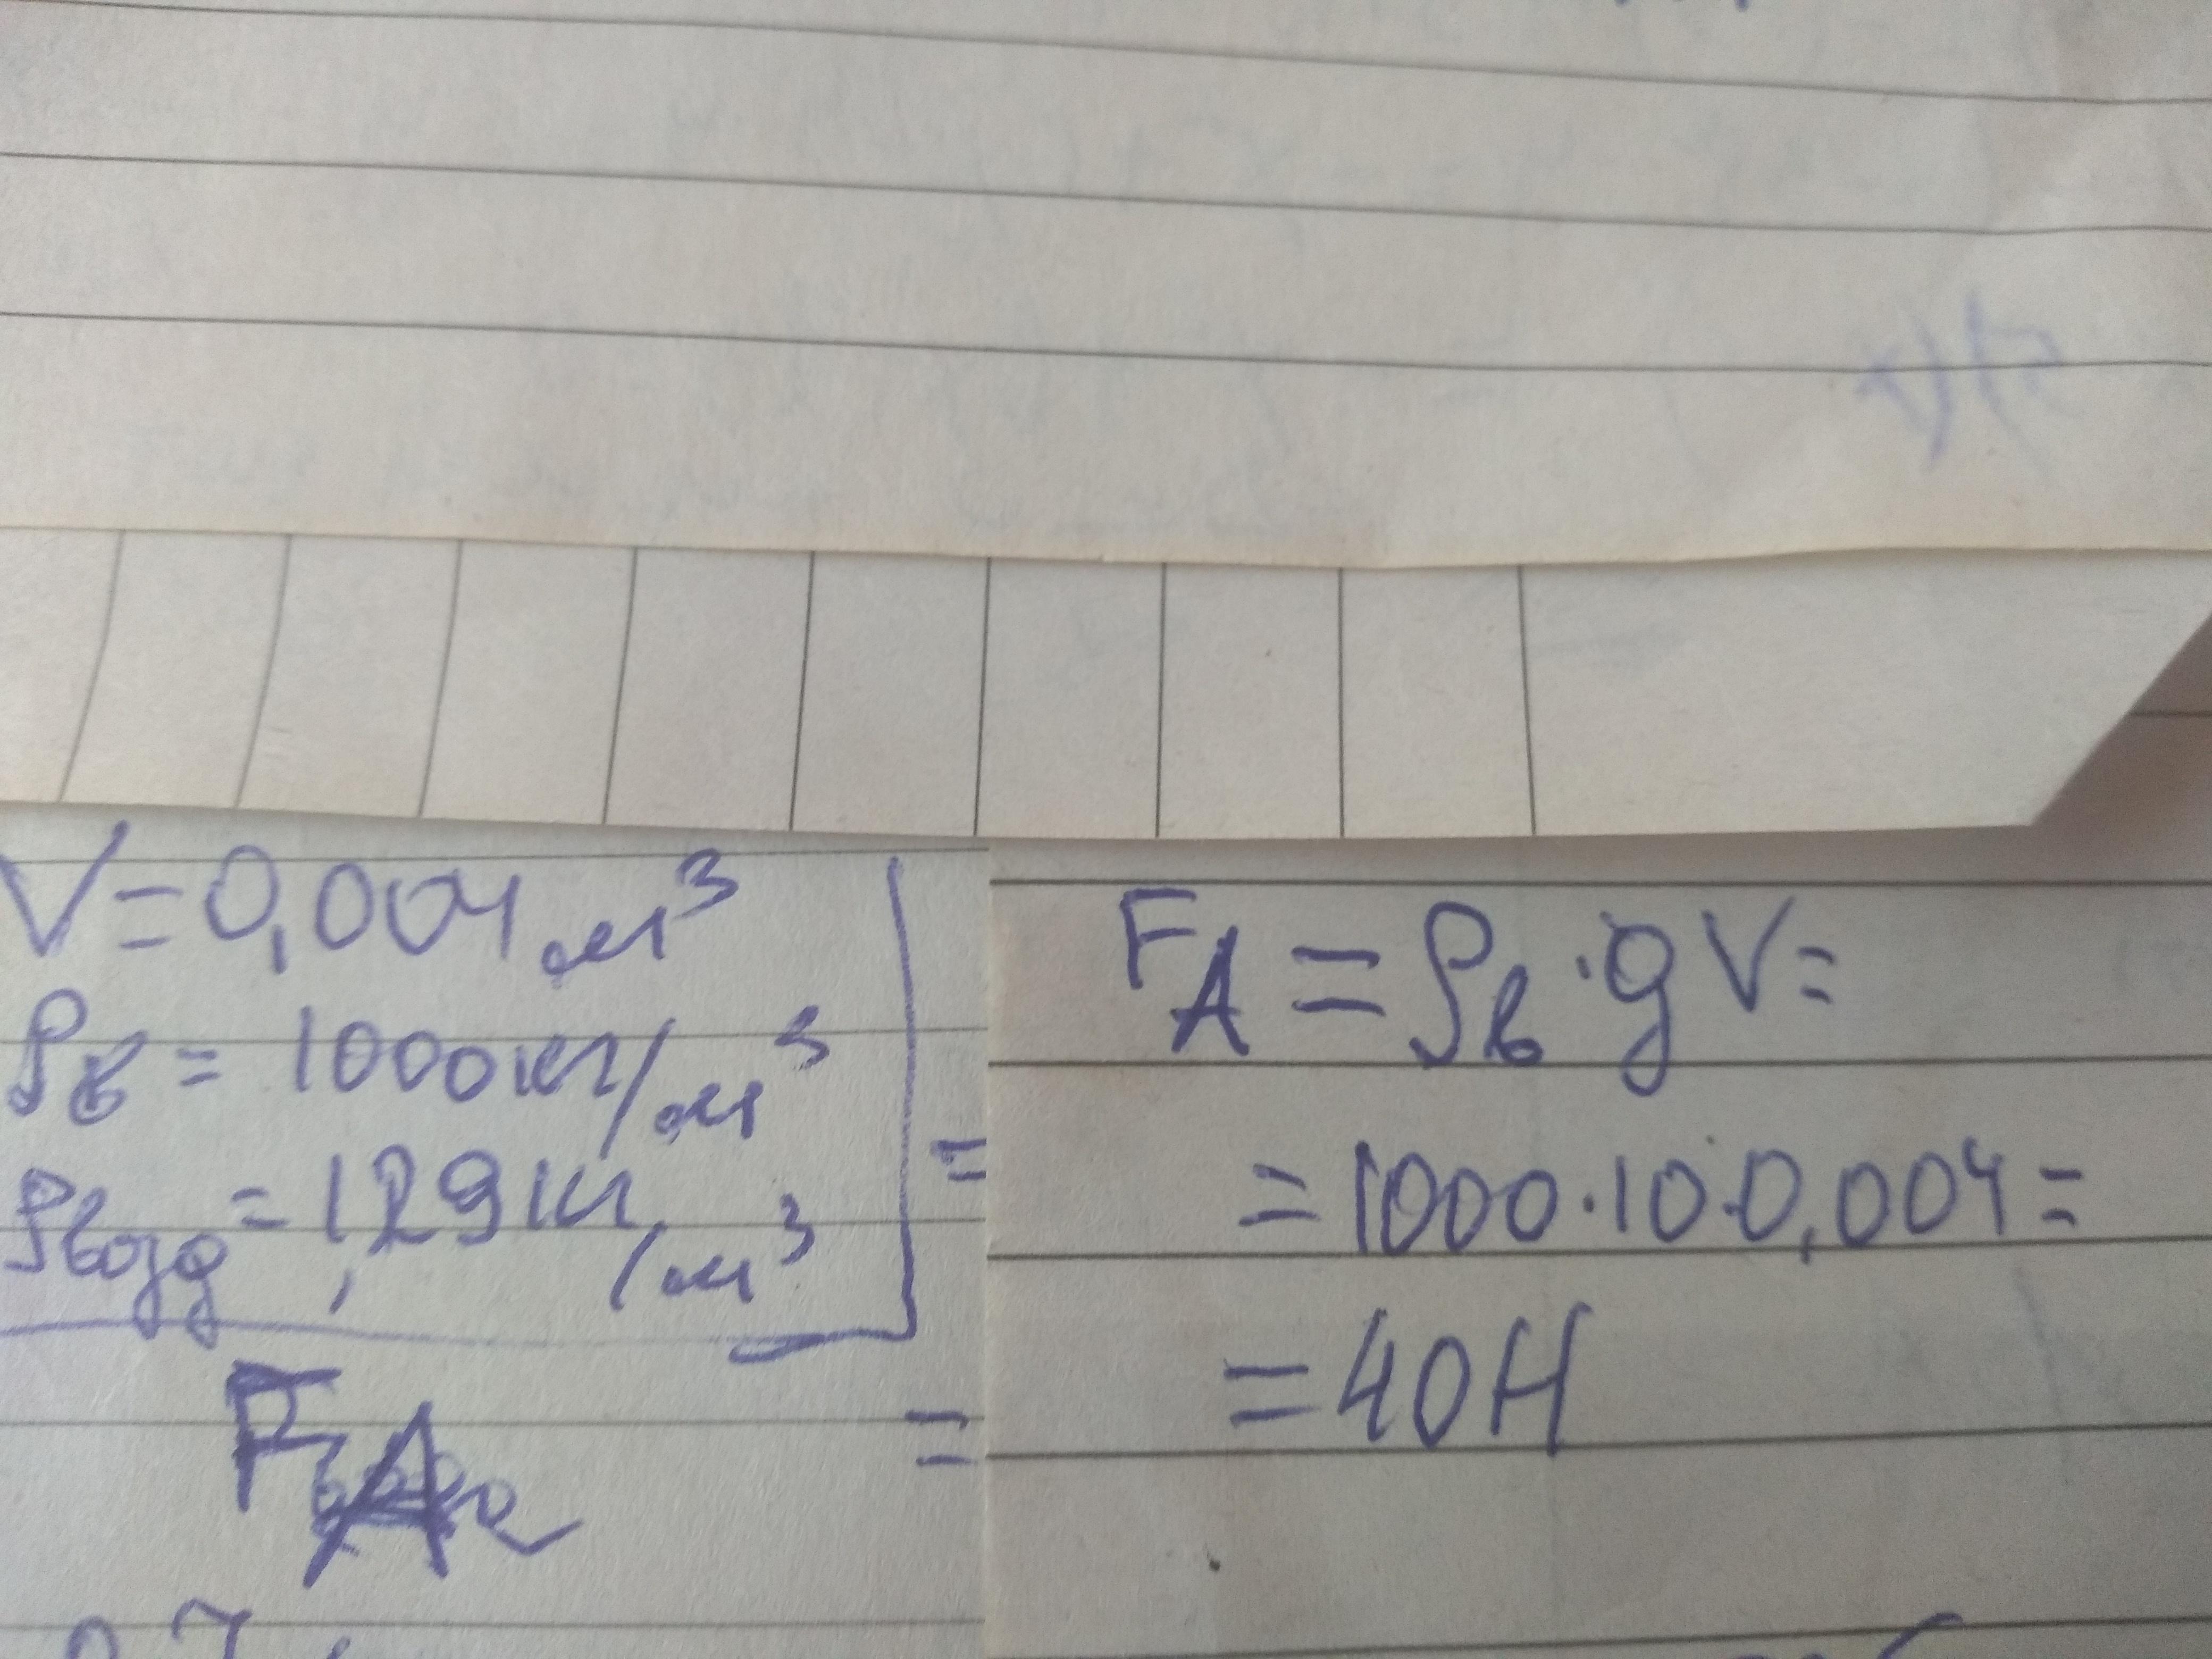 V = 0,004 м³
ρв = 1000 кг/м³
ρвозд = 1,29 кг/м³
=
FA
=
FA = ρв · g V =
= 1000 · 10 · 0,004 =
= 40 Н